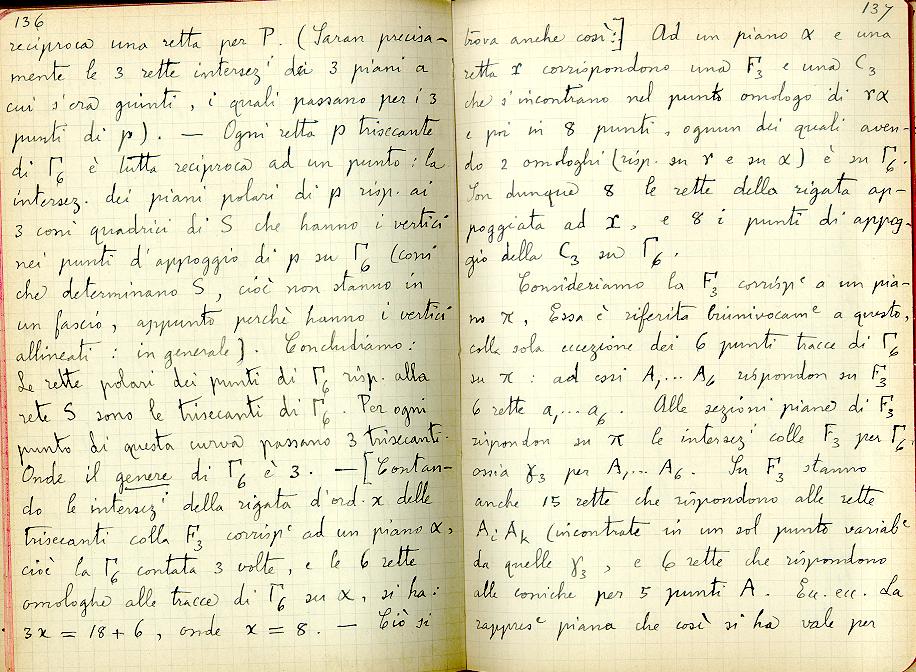 136
reciproca una retta per P. (Saran precisa-
mente le 3 rette intersez' dei 3 piani a
cui s'era giunti, i quali passano per i 3
punti di p). — Ogni retta p trisecante
di Γ₆ è tutta reciproca ad un punto: la
intersez. dei piani polari di p risp. ai
3 coni quadrici di S che hanno i vertici
nei punti d'appoggio di p su Γ₆ (coni
che determinano S, cioè non stanno in
un fascio, appunto perchè hanno i vertici
allineati: in generale). Concludiamo:
Le rette polari dei punti di Γ₆ risp. alla
rete S sono le trisecanti di Γ₆. Per ogni
punto di questa curva passano 3 trisecanti.
Onde il genere di Γ₆ è 3. — [Contan-
do le intersez' della rigata d'ord. x delle
trisecanti colla F₃ corrispᵉ ad un piano α,
cioè la Γ₆ contata 3 volte, e le 6 rette
omologhe alle tracce di Γ₆ su α, si ha:
3x = 18 + 6, onde x = 8. — Ciò si
137
trova anche così:] Ad un piano α e una
retta r corrispondono una F₃ e una C₃
che s'incontrano nel punto omologo di rα
e poi in 8 punti, ognun dei quali aven-
do 2 omologhi (risp. su r e su α) è su Γ₆.
Son dunque 8 le rette della rigata ap-
poggiata ad r, e 8 i punti di appog-
gio della C₃ su Γ₆.
Consideriamo la F₃ corrispᵉ a un pia-
no π. Essa è riferita biunivocamᵉ a questo,
colla sola eccezione dei 6 punti tracce di Γ₆
su π: ad essi A₁... A₆ rispondon su F₃
6 rette a₁... a₆. Alle sezioni piane di F₃
rispondon su π le intersez' colle F₃ per Γ₆,
ossia γ₃ per A₁... A₆. Su F₃ stanno
anche 15 rette che rispondono alle rette
AᵢAₖ (incontrate in un sol punto variabᵉ
da quelle γ₃, e 6 rette che rispondono
alle coniche per 5 punti A. Ecc. ecc. La
rappresᵉ piana che così si ha vale per